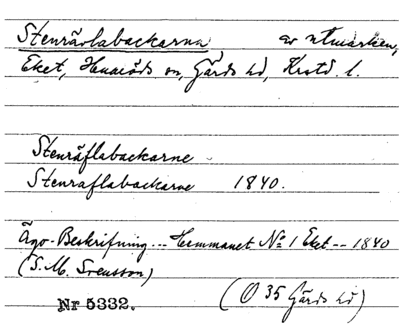 Stenrävlabackarna av utmarken,
Eket, Huaröds sn, Gärds hd, Krstd. l.
Stenräflabackarne
Stenraflabackarne 1840.
Ägo-Beskrifning... Hemmanet No 1 Eket -- 1840
(S. M. Svensson)
Nr 5332. (O 35 Gärds hd)